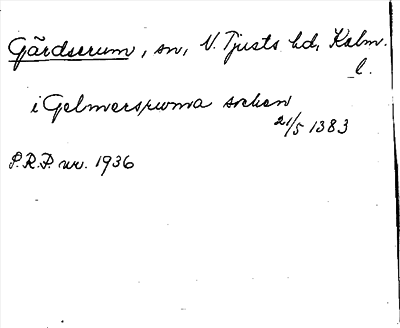 Gärdserum, sn, N. Tjusts hd, Kalm.
l.
i Gelmersruma sochen
21/5 1383
S.R.P. nr. 1936